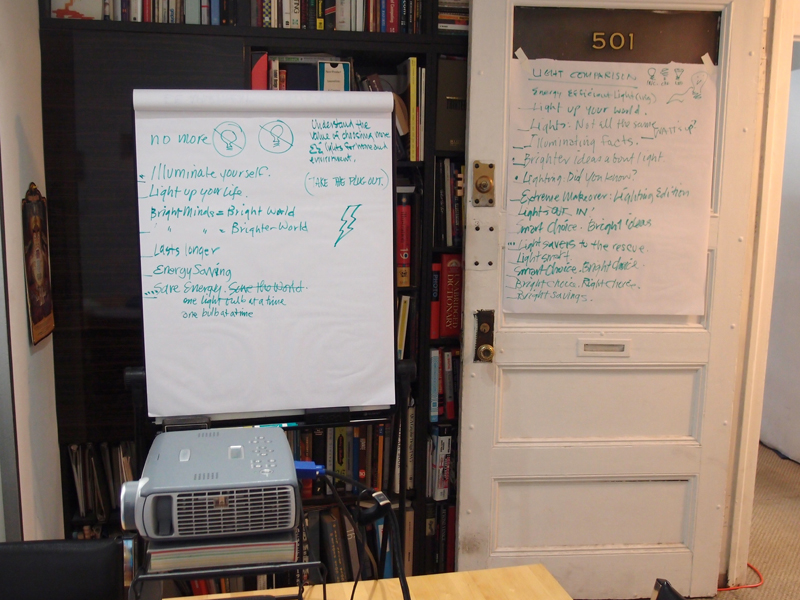 no more
Understand the
value of choosing more
lights for more and
environment.
(TAKE THE PLUG OUT.)
Illuminate yourself.
Light up your life.
Bright Minds = Bright World
" " " = Brighter World
Lasts longer
Energy Saving
Save Energy. Save the World.
one light bulb at a time
one bulb at a time
501
LIGHT COMPARISON
Energy Efficient Light
Light up your world.
Lights: Not all the same
Illuminating facts.
Brighter Ideas about light
Lighting. Did you know?
Extreme Makeover: Lighting Edition
Lights OUT. IN!
Smart Choice. Bright ideas
Lightsavers to the rescue.
Light smart
Smart Choice. Bright Choice.
Bright Choice. Right Choice.
Bright Savings.
DICTIONARY